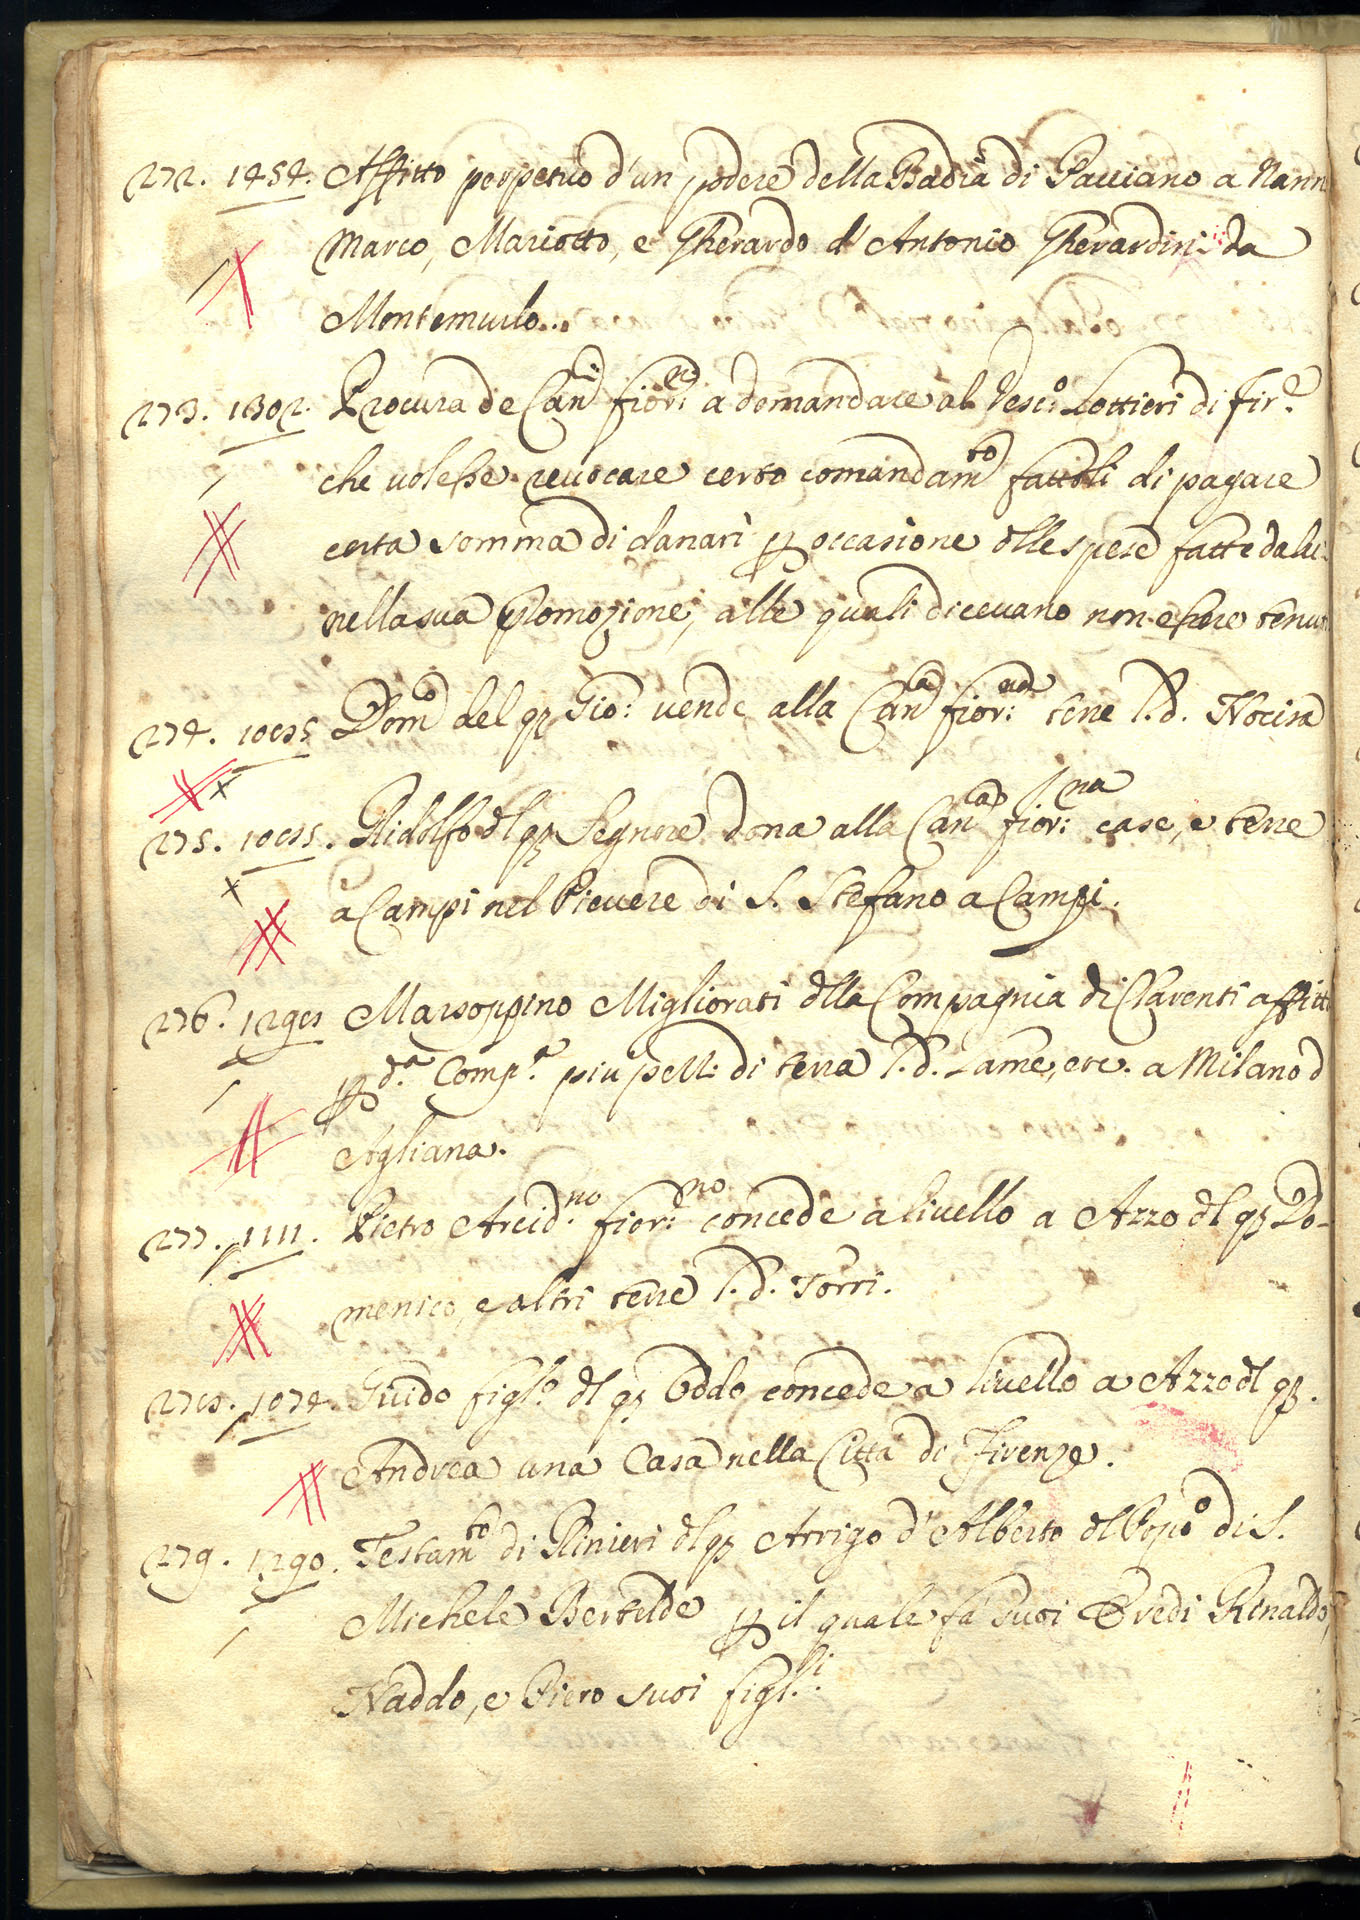 272. 1454. Affitto perpetuo d'un podere della Badia di Pacciano a Nann
Marco, Mariotto, e Gherardo d'Antonio Gherardini da
Montemurlo...
273. 1302. Procura de Can.ci fior.ni a domandare al Vesc.o Lottieri di Fir.e
che volesse revocare certo comandam.to fattoli di pagare
certa somma di danari p occasione dlle spese fatte da lui
nella sua promozione, alle quali dicevano non essere tenuti
274. Dom.o del q Gio: vende alla Can.a fior.na terre l.d. Nocira
275. Ridolfo dl q Segnore dona alla Can.a fior.na case, e terre
a Campi nel Pievere di S. Stefano a Campi.
276. Marsoppino Migliorati dlla Compagnia di Claventi affitt
p d.a Comp.a più pell: di terra l.d. Lame, etc. a Milano d
Agliana.
277. 1111. Pietro Arcid.no fior.no concede a livello a Azzo dl q Do-
menico, e altri terre l.d. Torri.
278. 1074. Guido figl.o dl q Oddo concede a livello a Azzo dl q.
Andrea una Casa nella Città di Firenze.
279. 1290. Testam.to di Rinieri dl q Arrigo d'Alberto dl Popo.o di S.
Michele Bertelde p il quale fa suoi Eredi Rinaldo,
Naddo, e Piero suoi figl.li: